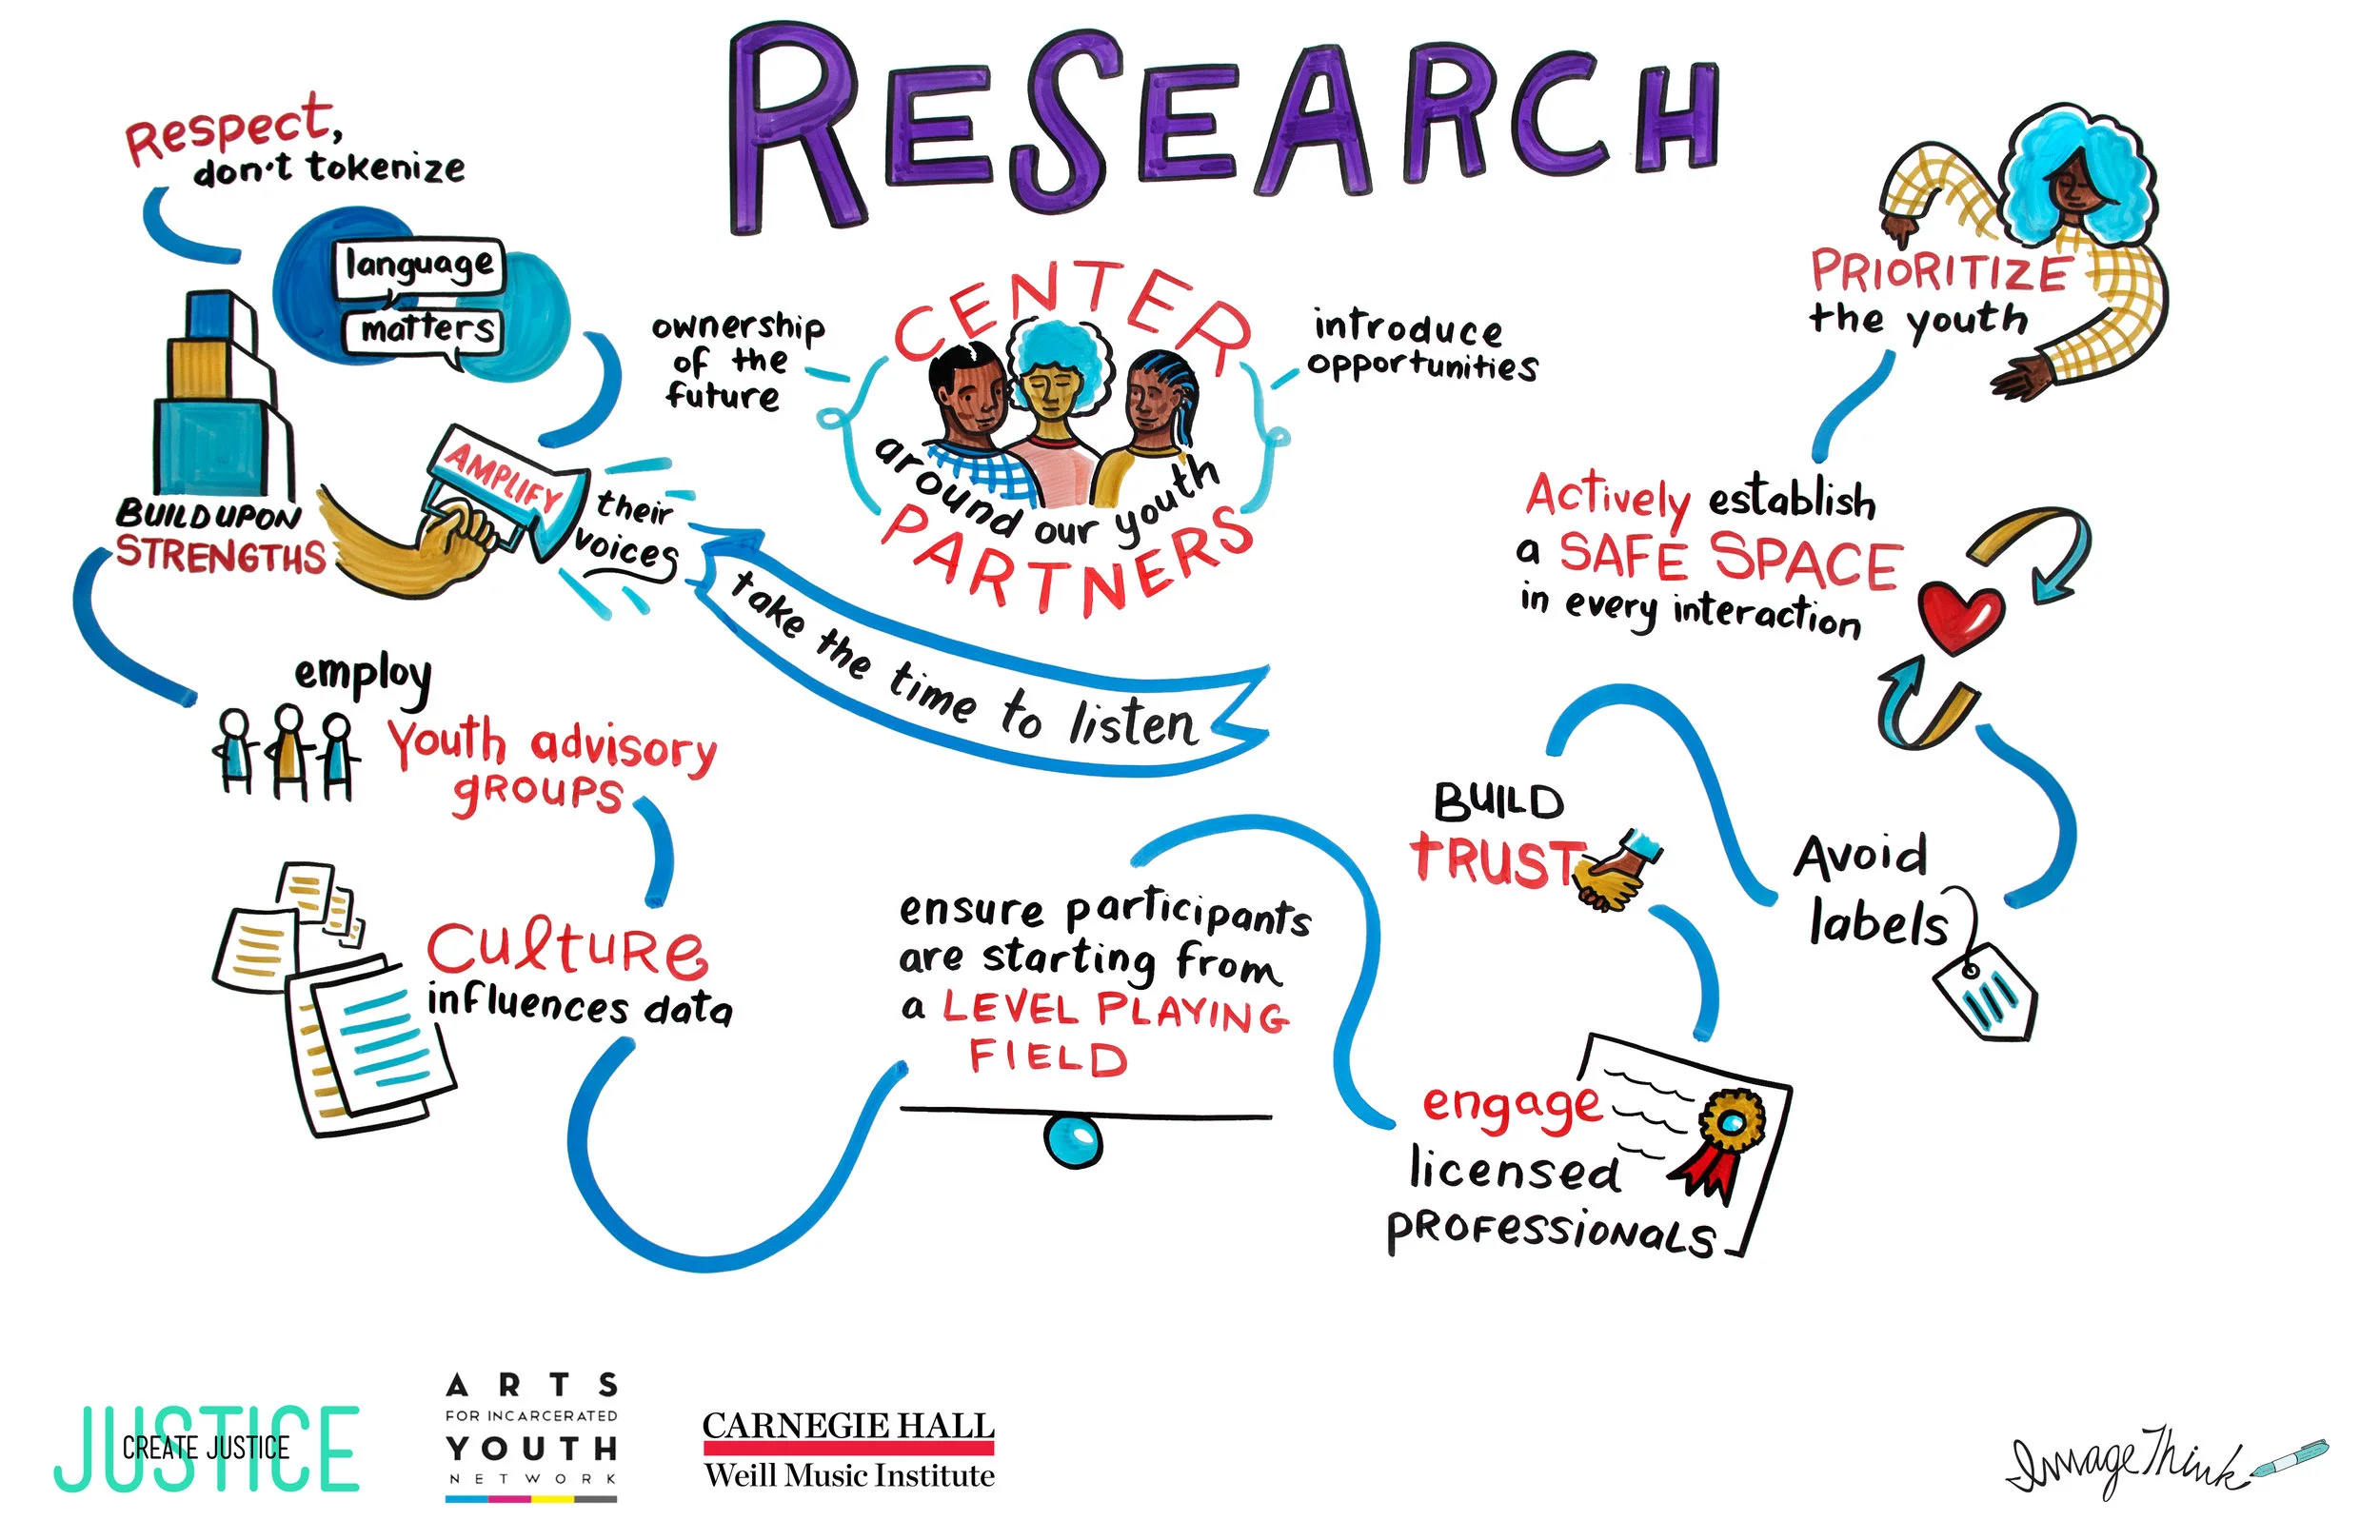 ReSEARCH
Respect,
don't tokenize
language
matters
BUILD UPON
STRENGTHS
AMPLIFY
their
voices
take the time to listen
ownership
of the
future
CENTER
around our youth
PARTNERS
introduce
opportunities
PRIORITIZE
the youth
Actively establish
a SAFE SPACE
in every interaction
employ
Youth advisory
gROUPS
CultuRe
influences data
ensure participants
are starting from
a LEVEL PLAYING
FIELD
BUILD
tRUST
Avoid
labels
engage
licensed
pROFessiONaLS
JUSTICE
CREATE JUSTICE
ARTS
FOR INCARCERATED
YOUTH
NETWORK
CARNEGIE HALL
Weill Music Institute
ImageThink